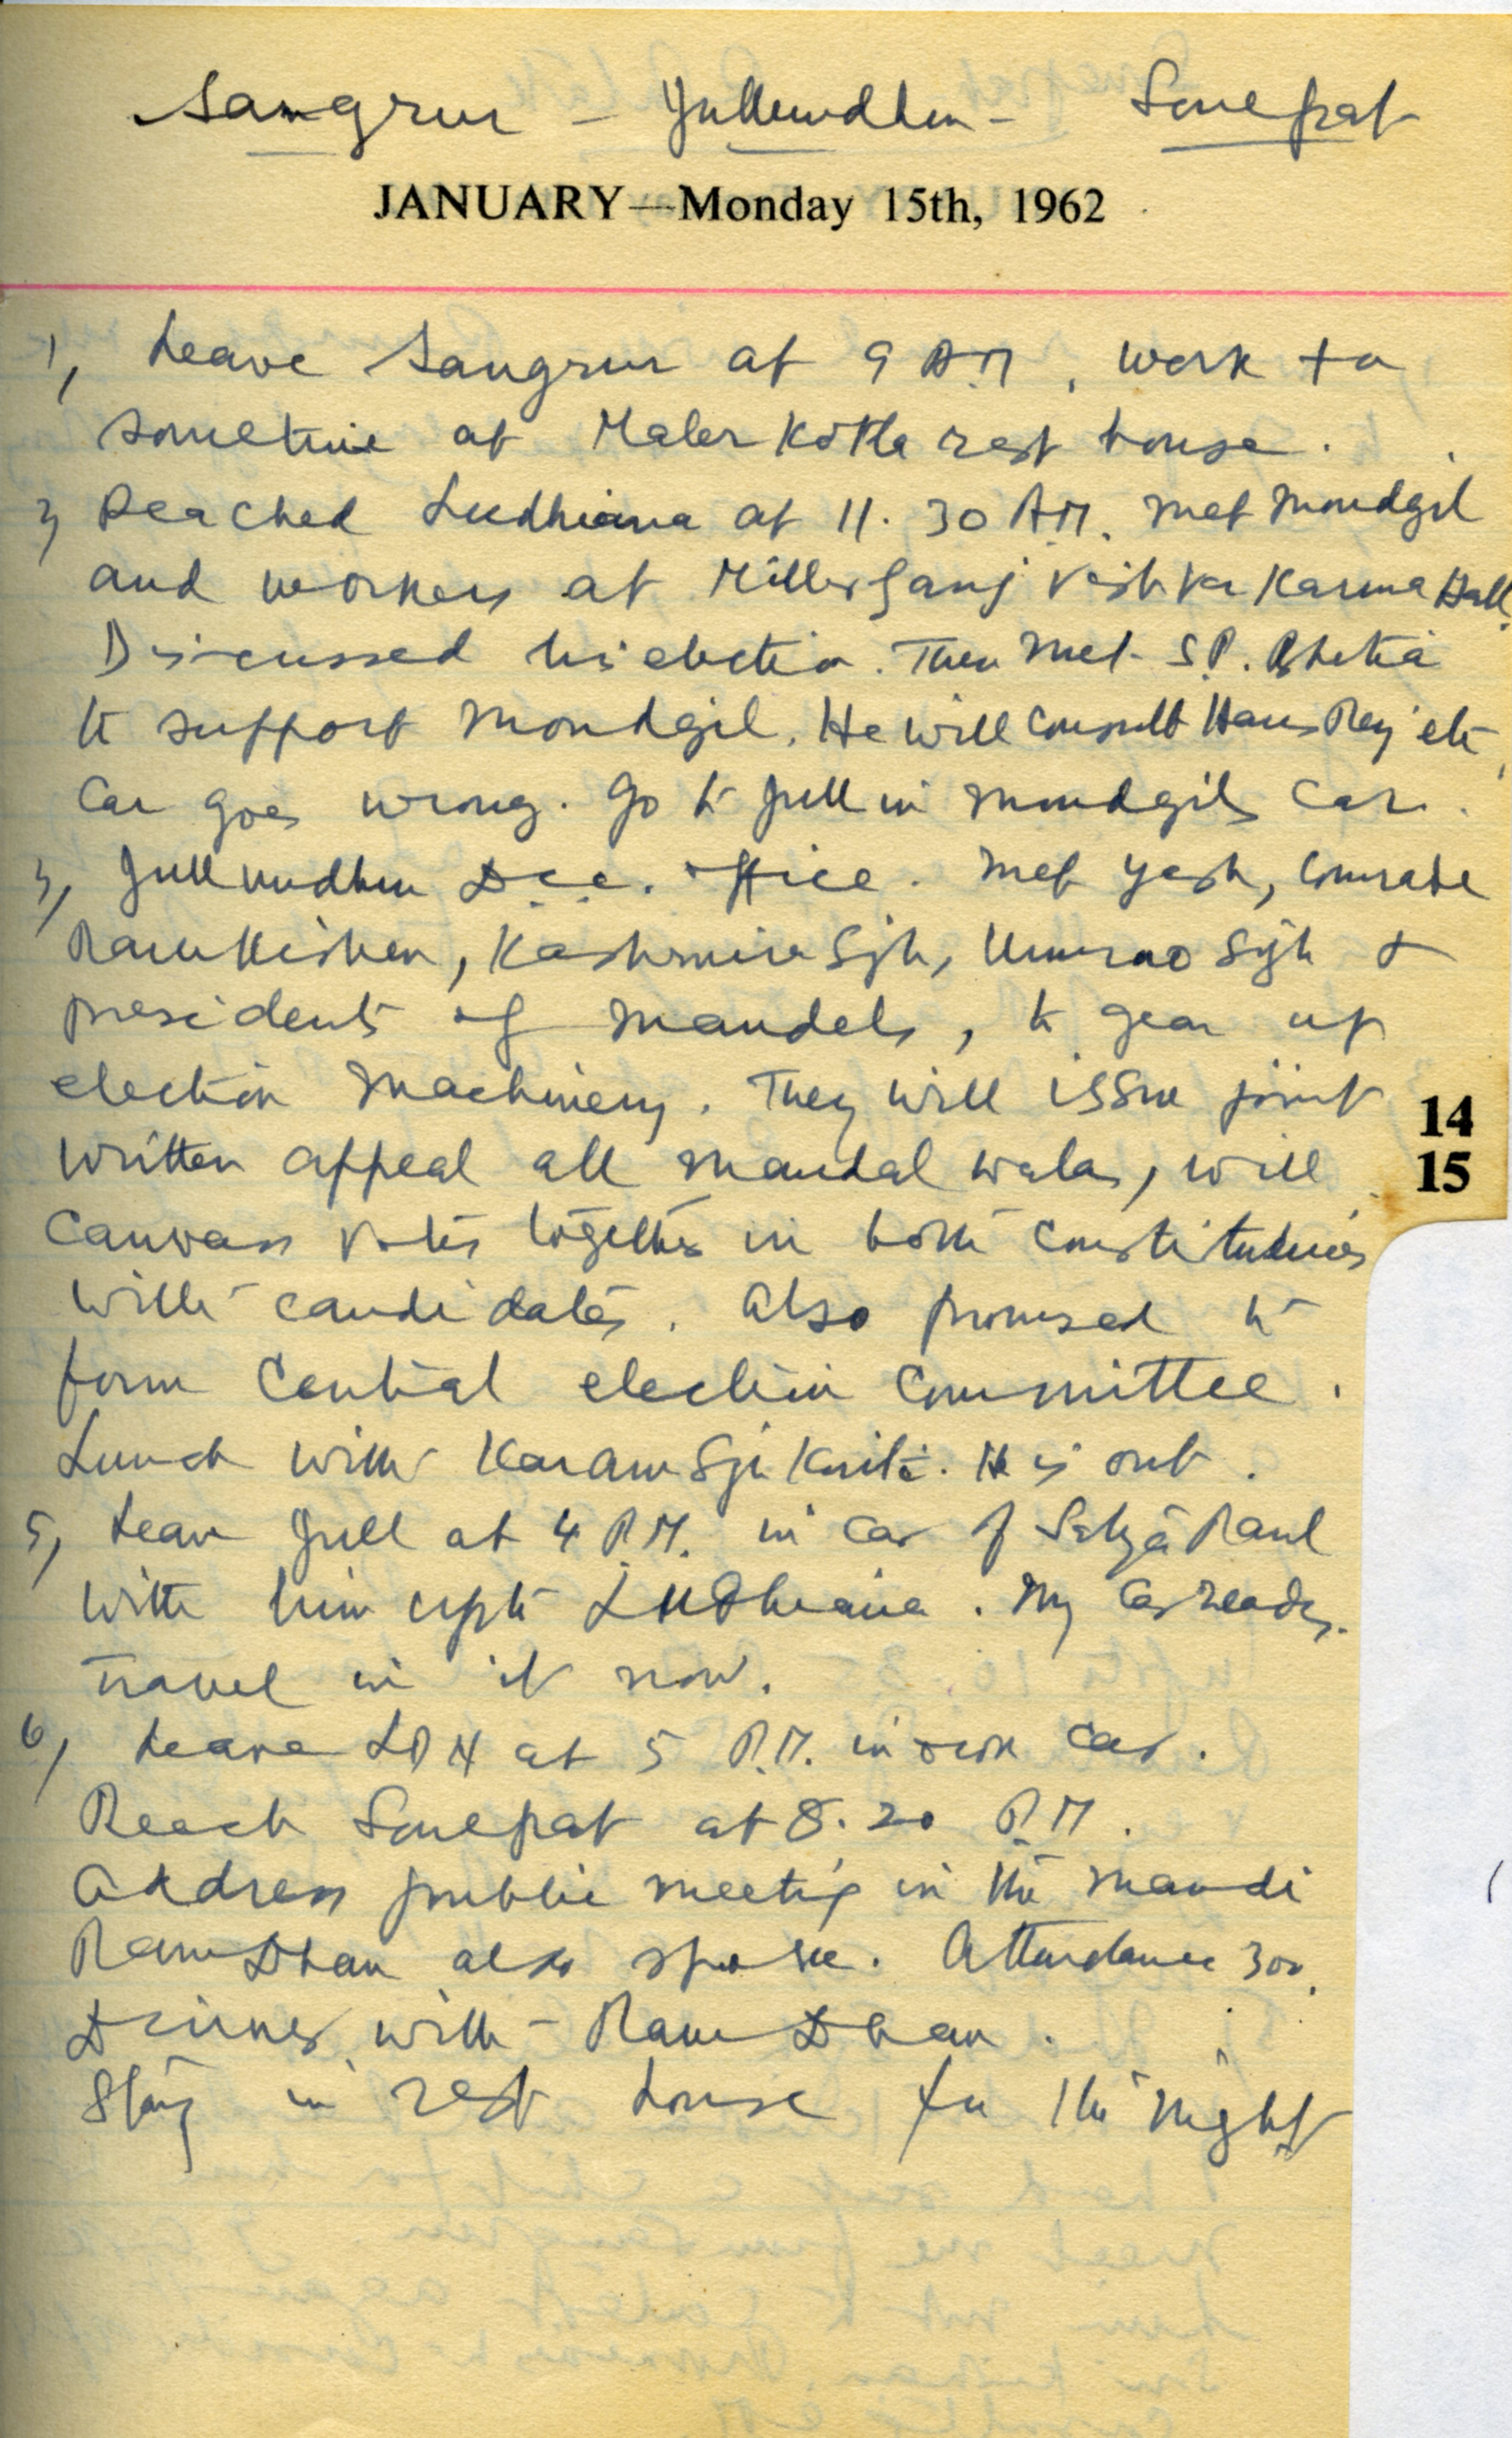 Sangrur - Jullundhur - Sonepat
JANUARY—Monday 15th, 1962
1, Leave Sangrur at 9 A.M, work
sometime at Malerkotla rest house.
2, Reached Ludhiana at 11.30 A.M. met Mondgil
and workers at Miller Ganj Vishka Karma Hall.
Discussed his election. Then met S.P. Bhatia
to support Mondgil. He will consult Hans Raj etc,
Car goes wrong. Go to Jull in Mondgils Car.
3, Jullundhur D.C.C. office. Met Yash, Comrade
Ramkishen, Kashmira Sgh, Umrao Sgh &
presidents of mandels, to gear up
election machinery. They will issue joint
14
written appeal all mandal walas, will
15
Canvass votes together in both constituencies
with candidates. Also promised to
form Central election Committee.
Lunch with Karam Sgh Kirti. He is out.
5, Leave Jull at 4 P.M. in Car of Satya Paul
with him upto Ludhiana. My Car ready.
Travel in it now.
6, Leave LDH at 5 P.M. in own Car.
Reach Sonepat at 8.20 P.M.
Address public meeting in the mandi
Ram Dhan also spoke. Attendance 300.
Dinner with - Ram Dhan.
Stay in rest house for the night